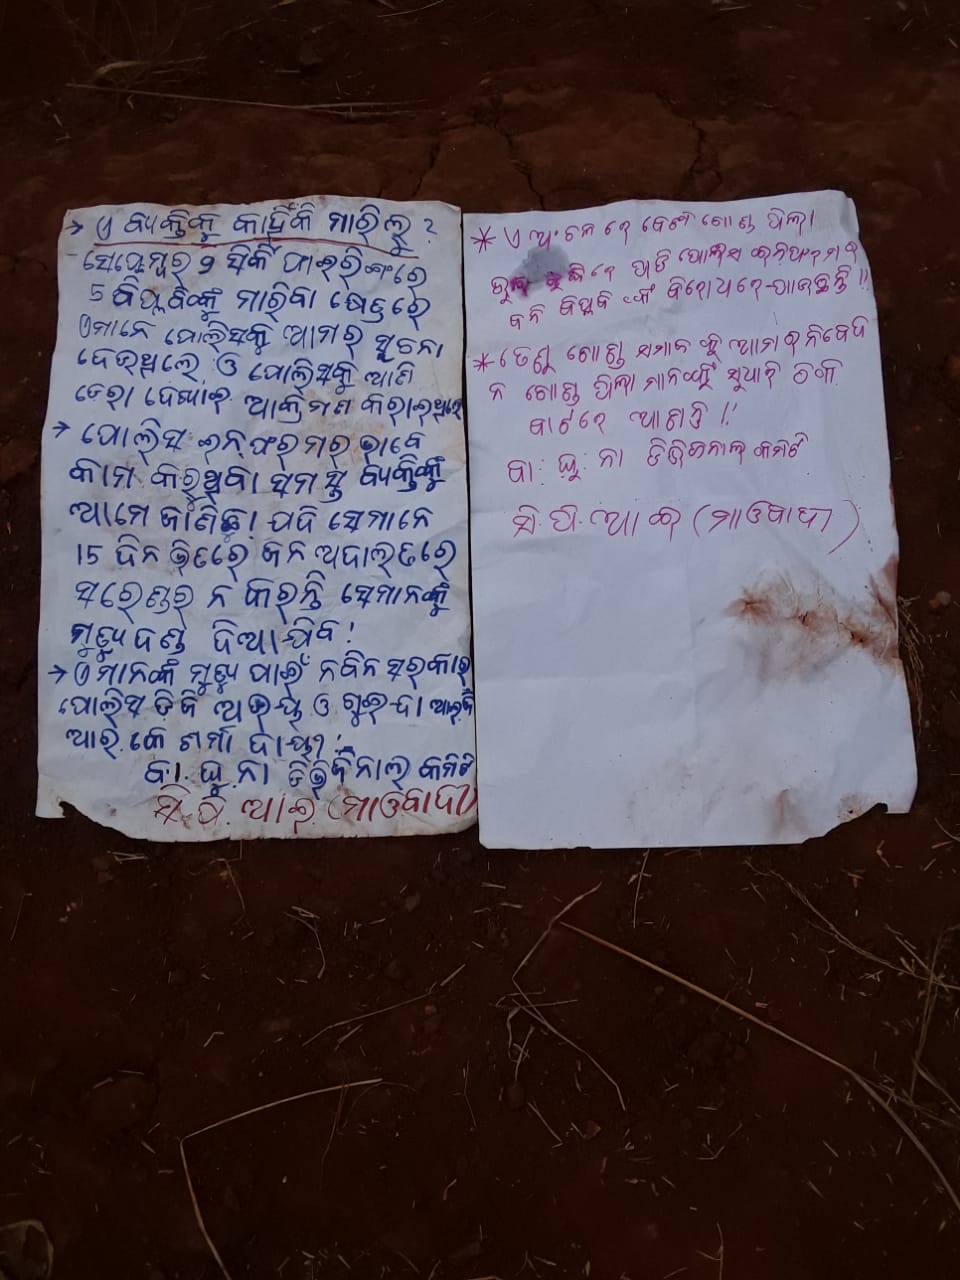 → ଏ ବ୍ୟକ୍ତିକୁ କାହିଁକି ମାରିଲୁ ?
ସେପ୍ଟେମ୍ବର 9 ସିର୍କି ଫାଇରିଂରେ
5 ବିପ୍ଲବିଙ୍କୁ ମାରିବା କ୍ଷେତ୍ରରେ
ଏମାନେ ପୋଲିସକୁ ଆମର ସୁଚନା
ଦେଉଥିଲେ ଓ ପୋଲିସକୁ ଆଣି
ଡେରା ଦେଖାଇ ଆକ୍ରମଣ କରାଇଥିଲେ
→ ପୋଲିସ ଇନ୍‌ଫରମର୍ ଭାବେ
କାମ କରୁଥିବା ସମସ୍ତ ବ୍ୟକ୍ତିଙ୍କୁ
ଆମେ ଜାଣିଛୁ। ଯଦି ସେମାନେ
15 ଦିନ ଭିତରେ ଜନ ଅଦାଲତରେ
ସରେଣ୍ଡର ନ କରନ୍ତି ସେମାନଙ୍କୁ
ମୃତ୍ୟୁ ଦଣ୍ଡ ଦିଆଯିବ !
→ ଏମାନଙ୍କ ମୃତ୍ୟୁ ପାଇଁ ନବିନ ସରକାର
ପୋଲିସ ଡିଜି ଅଭୟ ଓ ଗୁଇନ୍ଦା ଆଇଜି
ଆର୍.କେ ଶର୍ମା ଦାୟୀ !
ବା. ଘୁ. ନା ଡିଭିଜିନାଲ୍ କମିଟି
ସି. ପି. ଆଇ. (ମାଓବାଦୀ)
* ଏ ଅଂଚଳରେ କେତେ ଗୋଣ୍ଡ ପିଲା
ପୋଲିସ ଇନ୍‌ଫରମର
ବନି ବିପ୍ଲବିଙ୍କ ବିରୋଧରେ ଯାଉଛନ୍ତି !!
* ତେଣୁ ଗୋଣ୍ଡ ସମାଜଙ୍କୁ ଆମର ନିବେଦ
ନ ଗୋଣ୍ଡ ପିଲାମାନଙ୍କୁ ସୁଧାରି ଠିକ୍
ବାଟରେ ଆଣନ୍ତି !!
ବା: ଘୁ: ନା ଡିଭିଜନାଲ କମିଟି
ସି. ପି. ଆଇ (ମାଓବାଦୀ)